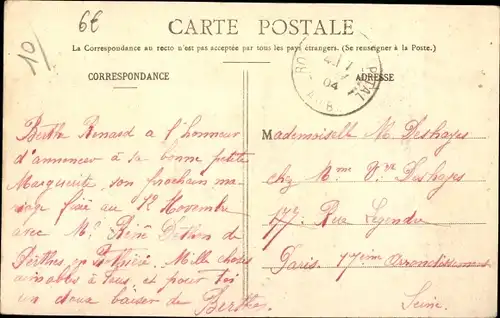 6€
10
CARTE POSTALE
La Correspondance au recto n'est pas acceptée par tous les pays étrangers. (Se renseigner à la Poste.)
CORRESPONDANCE
ADRESSE
04
Berthe Renard a l'honneur
d'annoncer à sa bonne petite
Marguerite, son prochain ma-
riage fixé au 12 Novembre
avec Mr René de
Perthes, Mille choses
aimables à tous, et pour toi
un doux baiser de Berthe.
Mademoiselle M. Deshayes
chez Mme Vve Deshayes
177 Rue Legendre
Paris. 17ème Arrondissement
Seine.